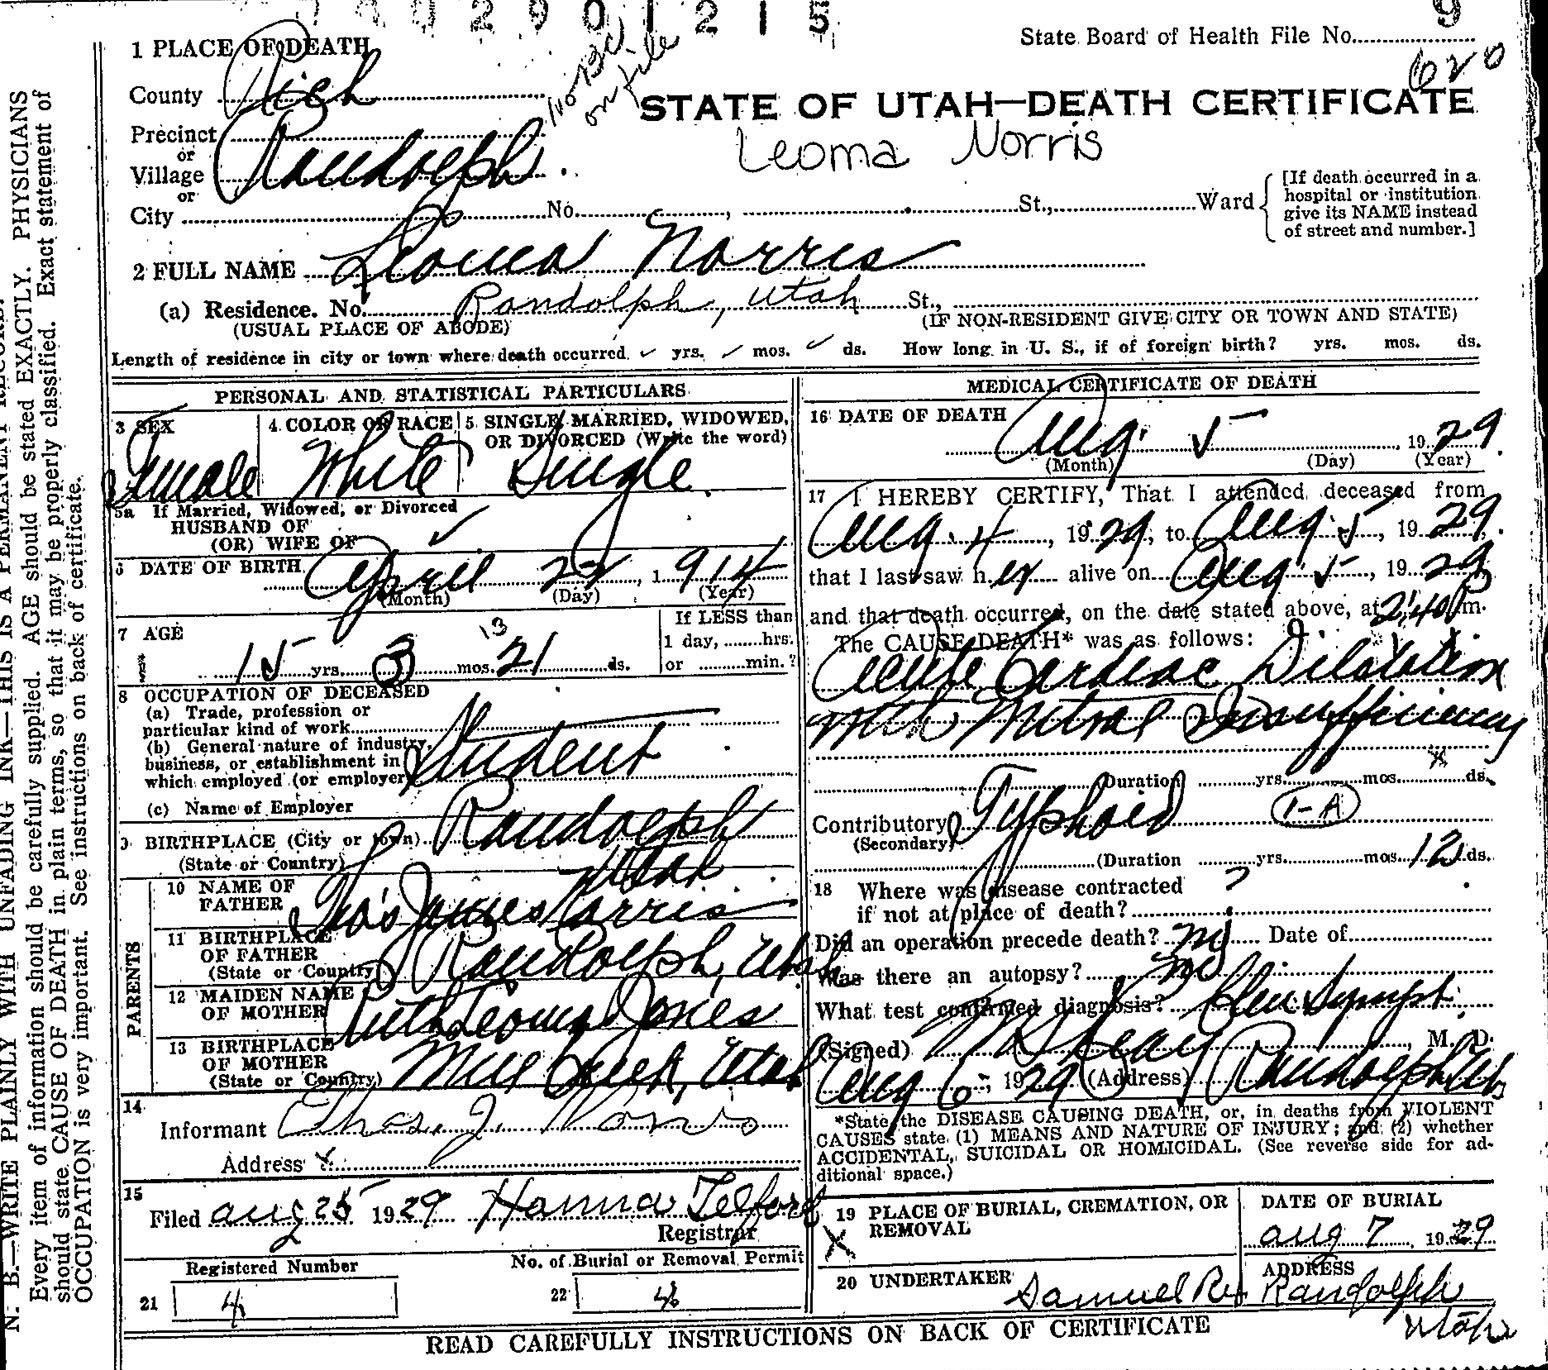 3 0 0 2 9 0 1 2 1 5
9
State Board of Health File No.
620
No BC
on file
1 PLACE OF DEATH
County Rich
STATE OF UTAH—DEATH CERTIFICATE
Precinct
or
Village Randolph.
or
Leoma Norris
City No. , St., Ward
[If death occurred in a
hospital or institution
give its NAME instead
of street and number.]
2 FULL NAME Leoma Norris
(a) Residence. No. Randolph, Utah St.,
(USUAL PLACE OF ABODE) (IF NON-RESIDENT GIVE CITY OR TOWN AND STATE)
Length of residence in city or town where death occurred yrs. mos. ds. How long in U. S., if of foreign birth? yrs. mos. ds.
PERSONAL AND STATISTICAL PARTICULARS
3 SEX
Female
4 COLOR OR RACE
White
5 SINGLE, MARRIED, WIDOWED,
OR DIVORCED (Write the word)
Single
5a If Married, Widowed, or Divorced
HUSBAND OF
(OR) WIFE OF
6 DATE OF BIRTH April 22, 1914
(Month) (Day) (Year)
7 AGE
15 yrs. 3 mos. 13 21 ds.
If LESS than
1 day, hrs.
or min.?
8 OCCUPATION OF DECEASED
(a) Trade, profession or
particular kind of work
(b) General nature of industry,
business, or establishment in
which employed (or employer)
Student
(c) Name of Employer
9 BIRTHPLACE (City or town) Randolph
(State or Country) Utah
PARENTS
10 NAME OF
FATHER Thos James Norris
11 BIRTHPLACE
OF FATHER
(State or Country) Randolph, Utah
12 MAIDEN NAME
OF MOTHER Ruth Leoma Jones
13 BIRTHPLACE
OF MOTHER
(State or Country) Mill Creek, Utah
14
Informant Thos. J. Norris
Address
15
Filed Aug 25 1929 Hanna Telford
Registrar
Registered Number
21 4
No. of Burial or Removal Permit
22 4
MEDICAL CERTIFICATE OF DEATH
16 DATE OF DEATH
Aug. 5, 1929.
(Month) (Day) (Year)
17 I HEREBY CERTIFY, That I attended deceased from
Aug. 4, 1929, to Aug. 5, 1929.
that I last saw her alive on Aug 5, 1929
and that death occurred, on the date stated above, at 2:40 P m.
The CAUSE DEATH* was as follows:
Acute Cardiac Dilatation
with Mitral Insufficiency
Duration yrs. mos. ds.
Contributory Typhoid 1-A
(Secondary)
(Duration yrs. mos. 12 ds.
18 Where was disease contracted
if not at place of death? ?
Did an operation precede death? no Date of
Was there an autopsy? no
What test confirmed diagnosis? Clin Sympt.
(Signed) M. D.
Aug 6, 1929 (Address) Randolph Ut
*State the DISEASE CAUSING DEATH, or, in deaths from VIOLENT
CAUSES state (1) MEANS AND NATURE OF INJURY; and (2) whether
ACCIDENTAL, SUICIDAL OR HOMICIDAL. (See reverse side for ad-
ditional space.)
19 PLACE OF BURIAL, CREMATION, OR
REMOVAL
X
DATE OF BURIAL
Aug 7 1929
20 UNDERTAKER Samuel Rex
ADDRESS
Randolph
Utah
READ CAREFULLY INSTRUCTIONS ON BACK OF CERTIFICATE
N. B.—WRITE PLAINLY WITH UNFADING INK—THIS IS A PERMANENT RECORD.
Every item of information should be carefully supplied. AGE should be stated EXACTLY. PHYSICIANS
should state CAUSE OF DEATH in plain terms, so that it may be properly classified. Exact statement of
OCCUPATION is very important. See instructions on back of certificate.